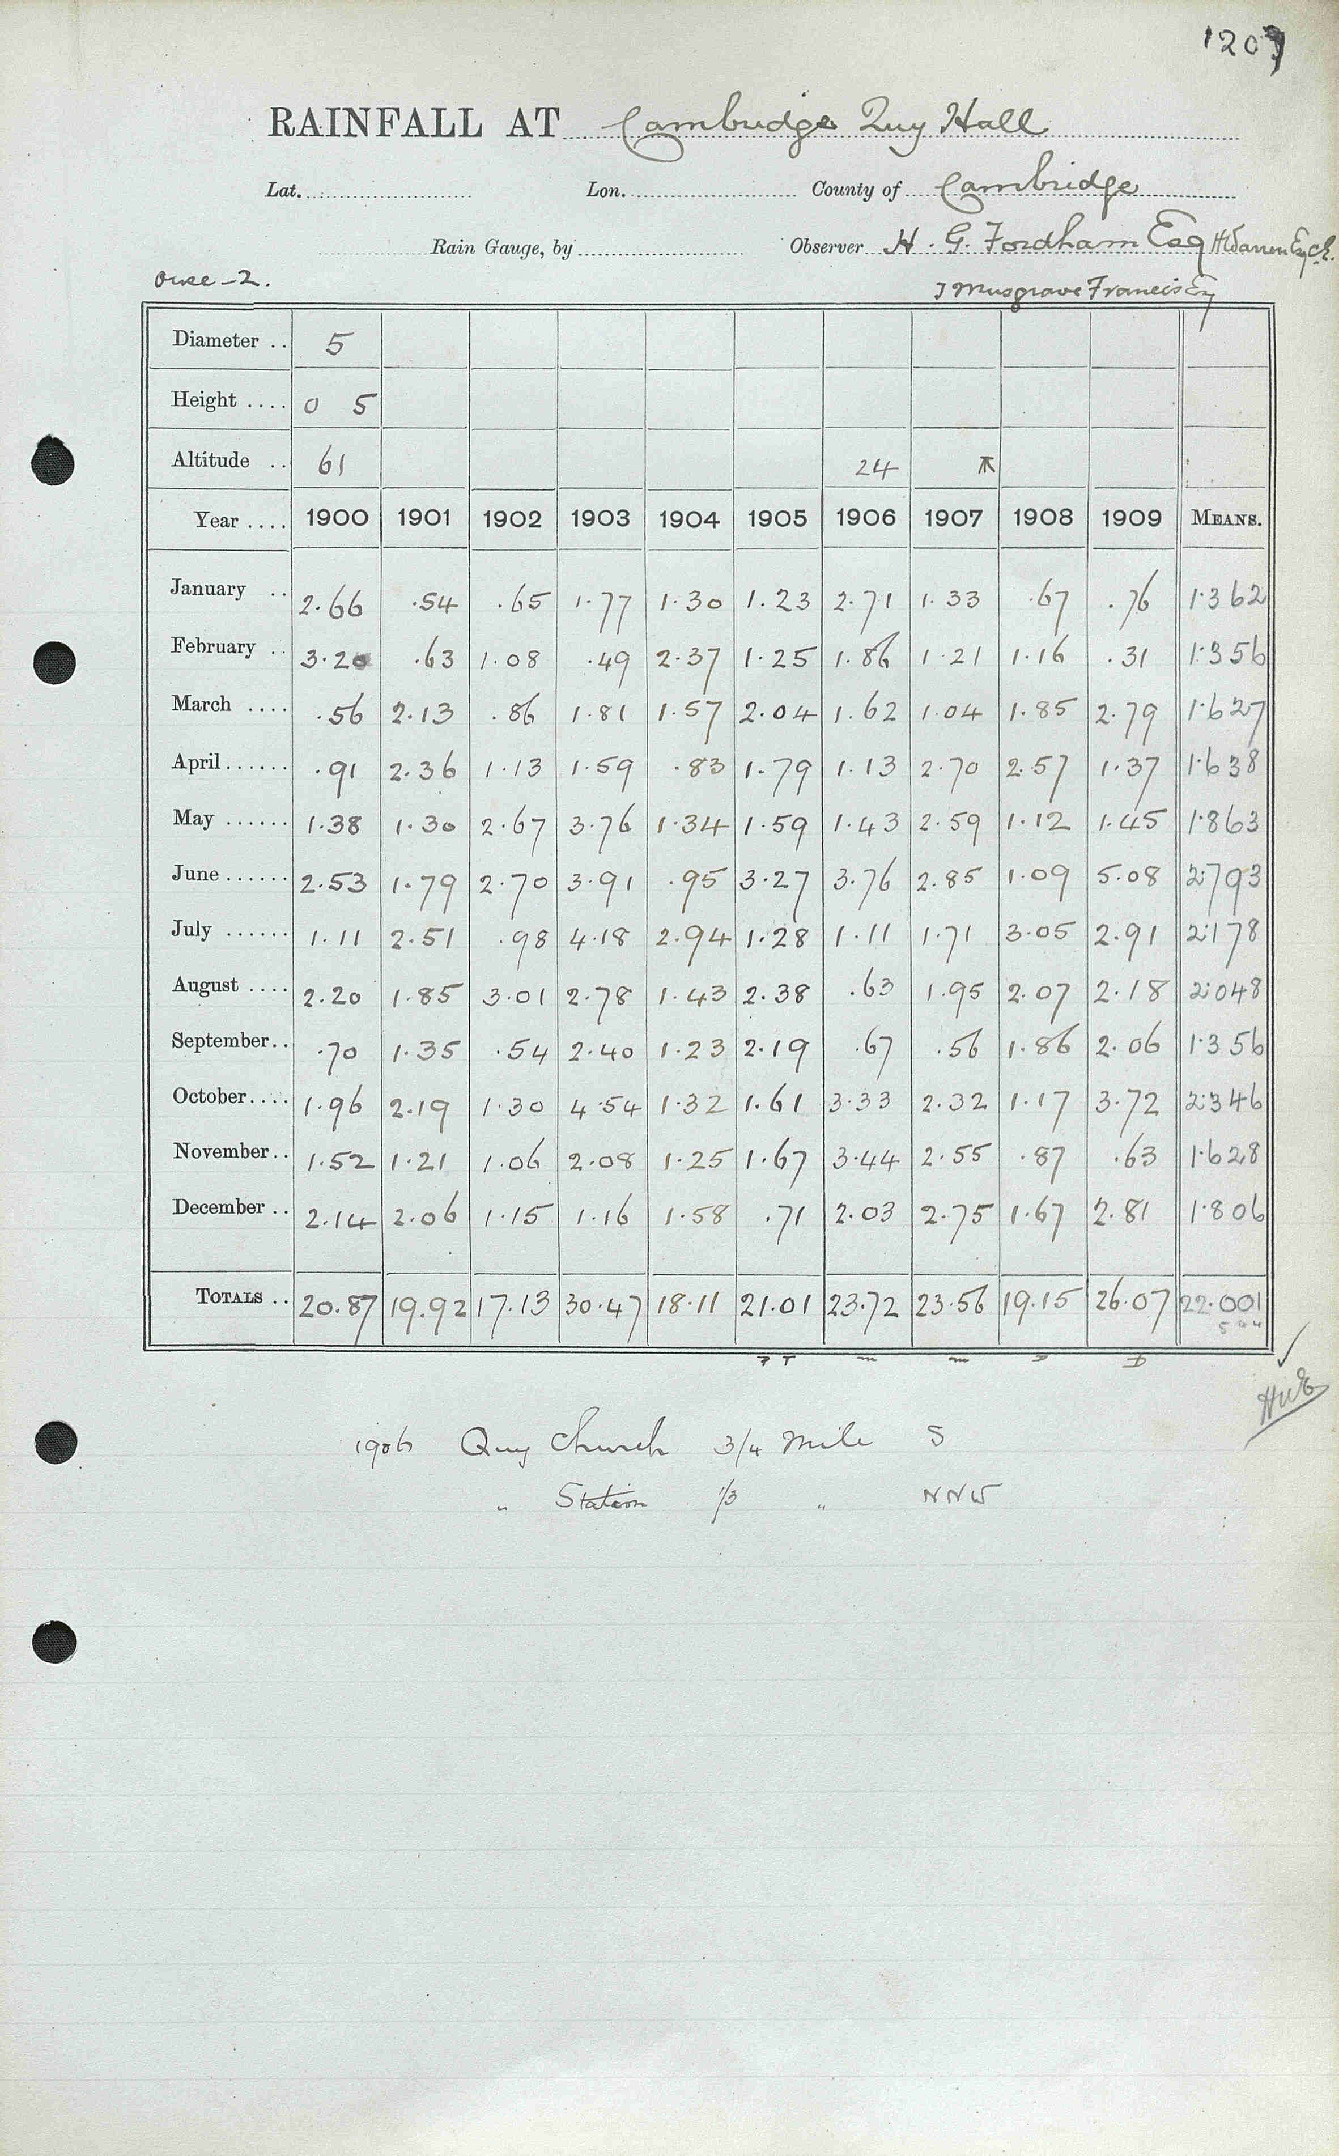 1209
RAINFALL AT Cambridge Quy Hall
Lat. Lon. County of Cambridge
Rain Gauge, by Observer H. G. Fordham Esq H Warren Esq
Ouse - 2. J Musgrave Francis Esq
Diameter .. 5
Height .... 0 5
Altitude .. 61 24
Year .... 1900 1901 1902 1903 1904 1905 1906 1907 1908 1909 MEANS.
January .. 2.66 .54 .65 1.77 1.30 1.23 2.71 1.33 .67 .76 1.362
February .. 3.20 .63 1.08 .49 2.37 1.25 1.86 1.21 1.16 .31 1.356
March .... .56 2.13 .86 1.81 1.57 2.04 1.62 1.04 1.85 2.79 1.627
April...... .91 2.36 1.13 1.59 .83 1.79 1.13 2.70 2.57 1.37 1.638
May ...... 1.38 1.30 2.67 3.76 1.34 1.59 1.43 2.59 1.12 1.45 1.863
June...... 2.53 1.79 2.70 3.91 .95 3.27 3.76 2.85 1.09 5.08 2.793
July ...... 1.11 2.51 .98 4.18 2.94 1.28 1.11 1.71 3.05 2.91 2.178
August .... 2.20 1.85 3.01 2.78 1.43 2.38 .63 1.95 2.07 2.18 2.048
September.. .70 1.35 .54 2.40 1.23 2.19 .67 .56 1.86 2.06 1.356
October.... 1.96 2.19 1.30 4.54 1.32 1.61 3.33 2.32 1.17 3.72 2.346
November.. 1.52 1.21 1.06 2.08 1.25 1.67 3.44 2.55 .87 .63 1.628
December .. 2.14 2.06 1.15 1.16 1.58 .71 2.03 2.75 1.67 2.81 1.806
TOTALS .. 20.87 19.92 17.13 30.47 18.11 21.01 23.72 23.56 19.15 26.07 22.001
1906 Quy Church 3/4 mile S
" Station 1/3 " NNW